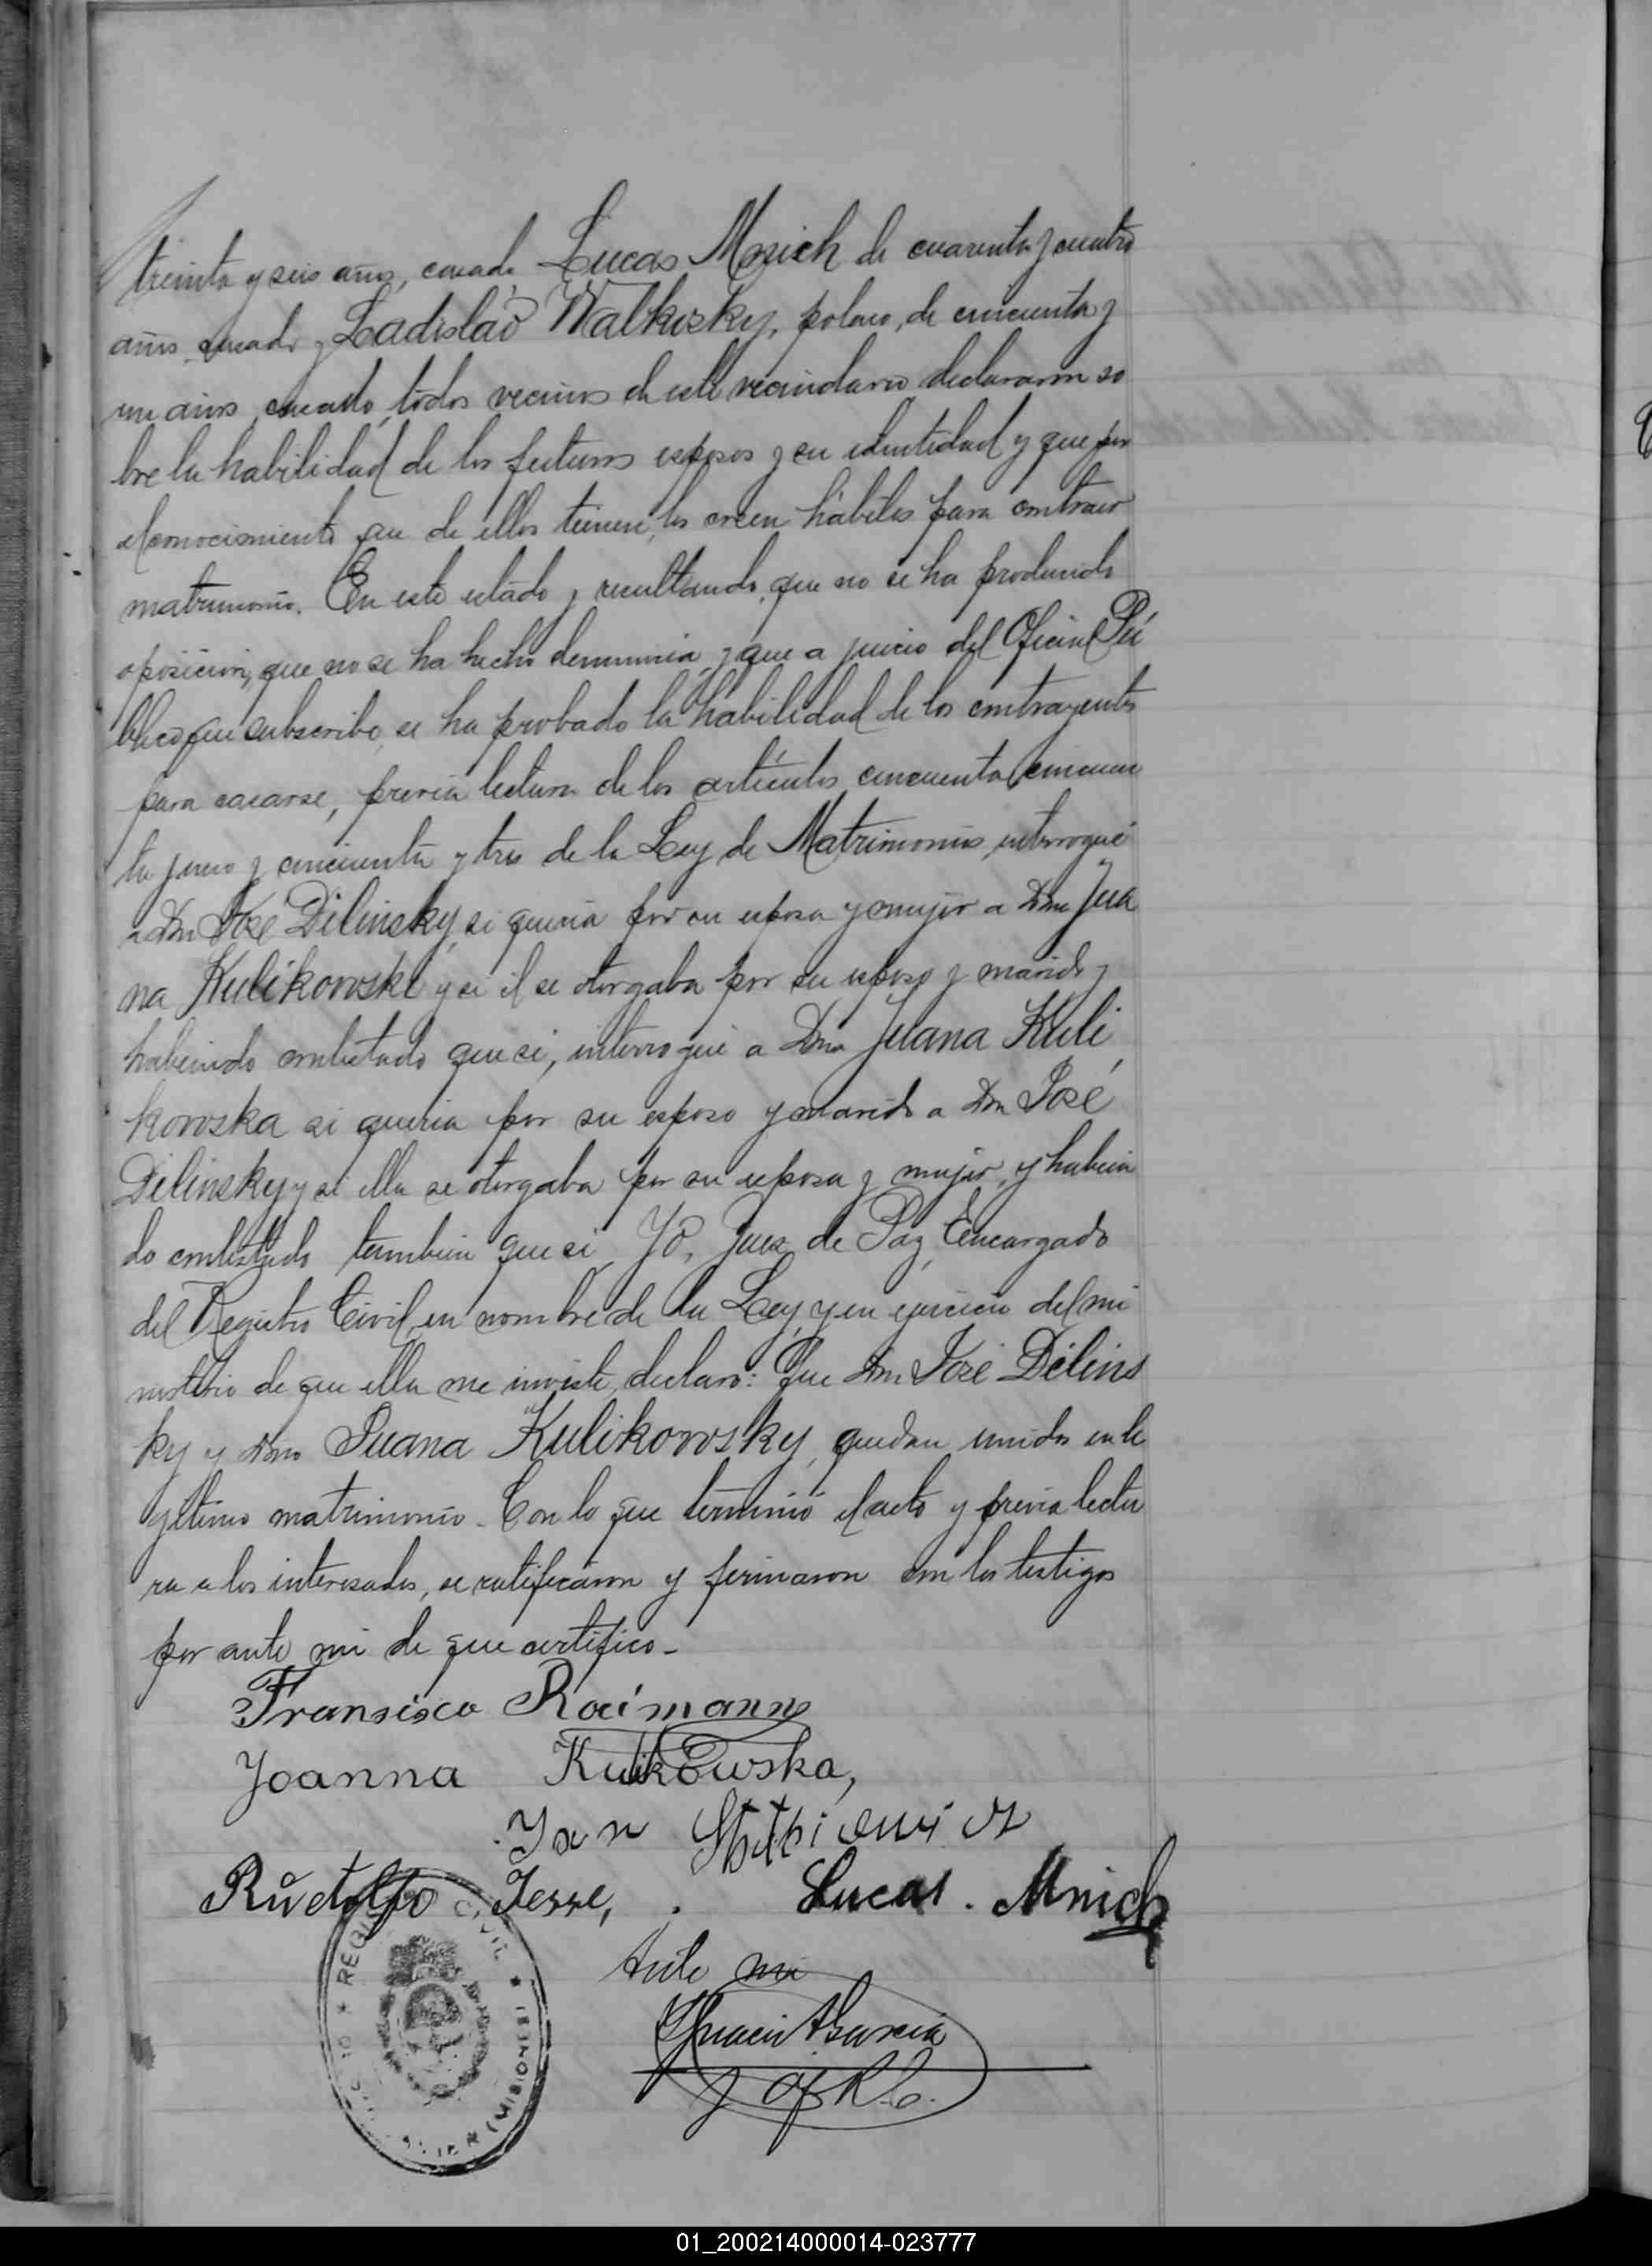 treinta y seis años, casado Lucas Mnich de cuarenta y cuatro
años casado y Ladislao Walkosky, polaco, de cincuenta y
un años, casado, todos vecinos de este vecindario declararon so
bre la habilidad de los futuros esposos y su identidad y que por
el conocimiento que de ellos tienen, los creen hábiles para contraer
matrimonio. En este estado y resultando, que no se ha producido
oposicion, que no se ha hecho denuncia, y que a juicio del Oficial Pú
blico que subscribe se ha probado la habilidad de los contrayentes
para casarse, previa lectura de los artículos cincuenta, cincuen
ta y uno y cincuenta y tres de la Ley de Matrimonios, interrogué
a Don José Dilinsky, si queria por su esposa y mujer a Dña Jua
na Kulikowski y si él se otorgaba por su esposo y marido y
habiendo contestado que si, interrogué a Dña Juana Kuli
kowska si queria por su esposo y marido a Don José
Dilinsky y si ella se otorgaba por su esposa y mujer, y habien
do contestado tambien que si, Yo, Juez de Paz, Encargado
del Registro Civil, en nombre de la Ley, y en ejercicio del mi
nisterio de que ella me inviste, declaro: Que Don José Dilins
ky y Dña Juana Kulikowsky, quedan unidos en le
gítimo matrimonio. Con lo que terminó el acto y previa lectu
ra a los interesados, se ratificaron y firmaron con los testigos
por ante mi de que certifico -
Fransisco Raimann
Joanna Kulikowska,
Jan
Rudolfo Jesse, Lucas. Mnich
Ante mi
Ignacio A García
J. Of R. C.
REGISTRO CIVIL (MISIONES)
01_200214000014-023777